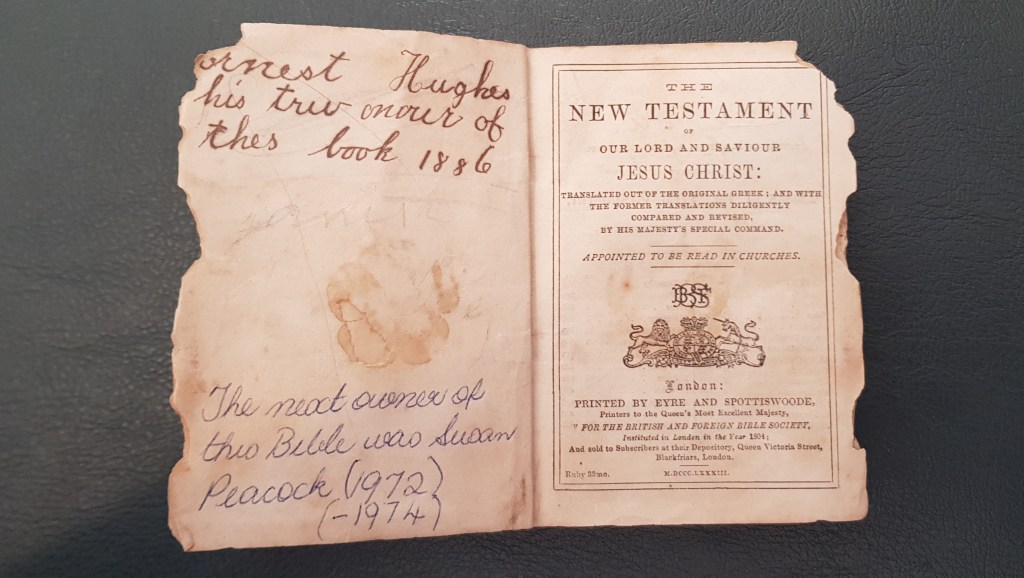 ornest Hughes
his tru onour of
thes book 1886
The next owner of
this Bible was Susan
Peacock (1972)
(-1974)
THE
NEW TESTAMENT
OF
OUR LORD AND SAVIOUR
JESUS CHRIST:
TRANSLATED OUT OF THE ORIGINAL GREEK; AND WITH
THE FORMER TRANSLATIONS DILIGENTLY
COMPARED AND REVISED,
BY HIS MAJESTY'S SPECIAL COMMAND.
APPOINTED TO BE READ IN CHURCHES.
London:
PRINTED BY EYRE AND SPOTTISWOODE,
Printers to the Queen's Most Excellent Majesty,
FOR THE BRITISH AND FOREIGN BIBLE SOCIETY,
Instituted in London in the Year 1804;
And sold to Subscribers at their Depository, Queen Victoria Street,
Blackfriars, London.
Ruby 32mo. M.DCCC.LXXXIII.